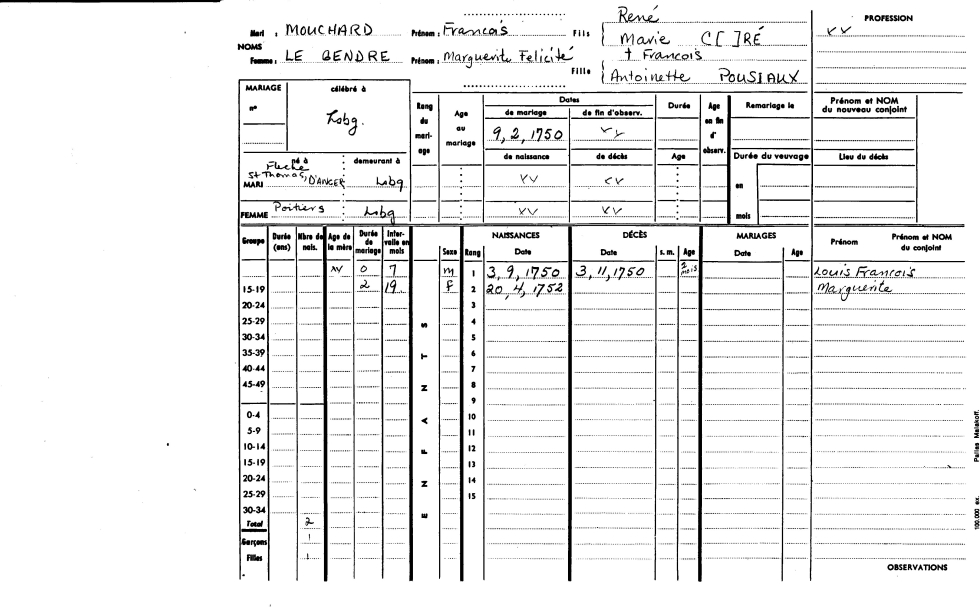 René
PROFESSION
Mari : MOUCHARD Prénom : Francois Fils Marie C[ ]RÉ vv
NOMS
Femme : LE GENDRE Prénom : Marguerite Felicité Fille † Francois
Antoinette POUSIAUX
MARIAGE célébré à Rang du mari-age Age au mariage Dates Durée Age en fin d'observ. Remariage le Prénom et NOM du nouveau conjoint
n° Lsbg. de mariage de fin d'observ.
9, 2, 1750 vv
né à demeurant à de naissance de décès Age Durée du veuvage Lieu du décès
Fleche
MARI St Thomas, D'ANGER Lsbg vv vv en
FEMME Poitiers Lsbg vv vv mois
Groupe Durée (ans) Nbre de nais. Age de la mère Durée de mariage Inter-valle en mois ENFANTS Sexe Rang NAISSANCES Date DÉCÈS Date s. m. Age MARIAGES Date Age Prénom Prénom et NOM du conjoint
vv 0 7 m 1 3, 9, 1750 3, 11, 1750 2 mois Louis Francois
15-19 2 19 f 2 20, 4, 1752 Marguerite
20-24 3
25-29 4
30-34 5
35-39 6
40-44 7
45-49 8
9
0-4 10
5-9 11
10-14 12
15-19 13
20-24 14
25-29 15
30-34
Total 2
Garçons 1
Filles 1
OBSERVATIONS
100.000 ex. Paillas Malakoff.